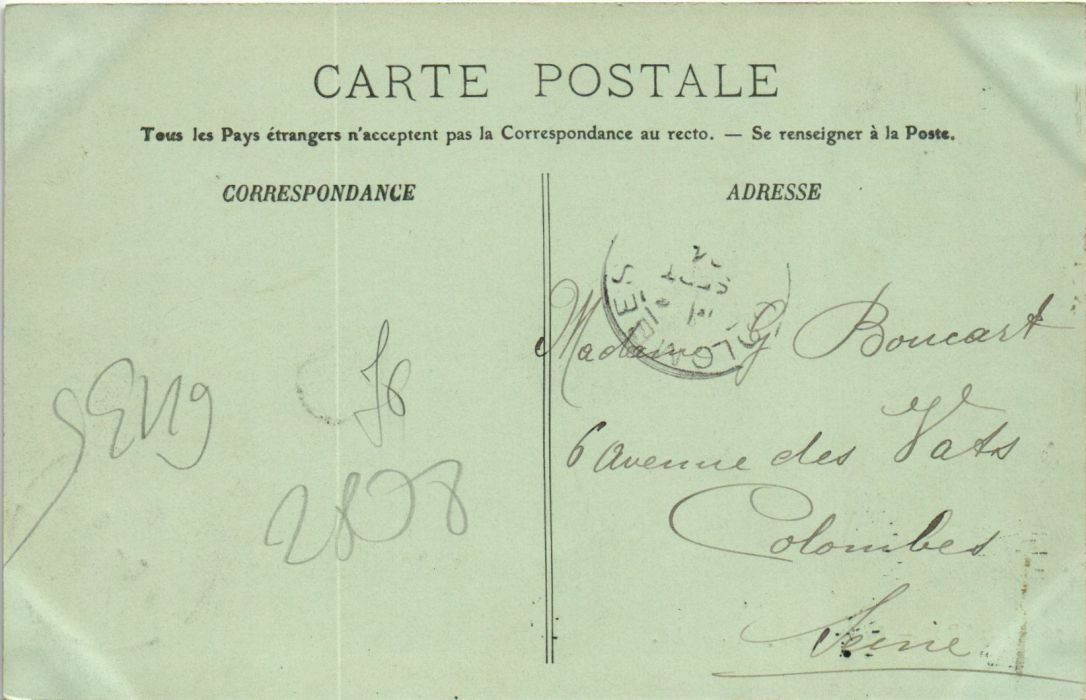 CARTE POSTALE
Tous les Pays étrangers n'acceptent pas la Correspondance au recto. — Se renseigner à la Poste.
CORRESPONDANCE
ADRESSE
Madame G Boucart
6 Avenue des Vats
Colombes
Seine
2808